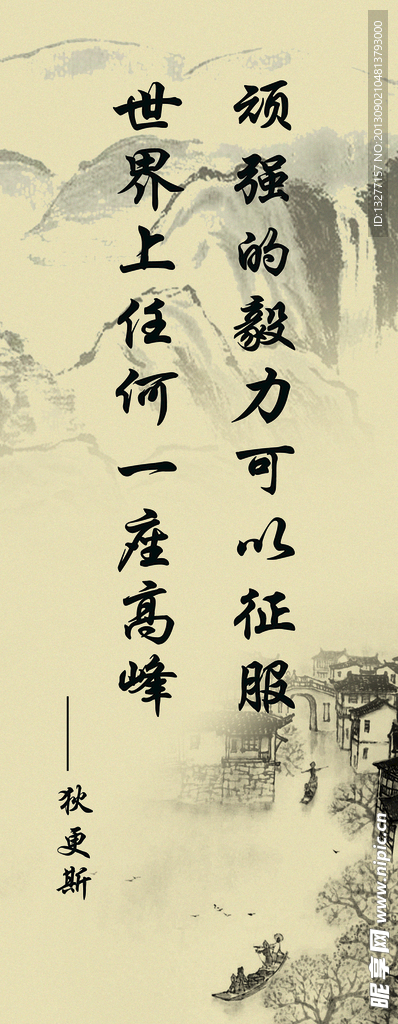 顽强的毅力可以征服
世界上任何一座高峰
——狄更斯
ID:13277157 NO:20130902104813793000
昵享网 www.nipic.cn